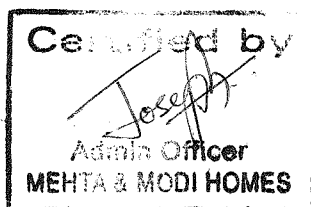 Certified by
Joseph
Admin Officer
MEHTA & MODI HOMES